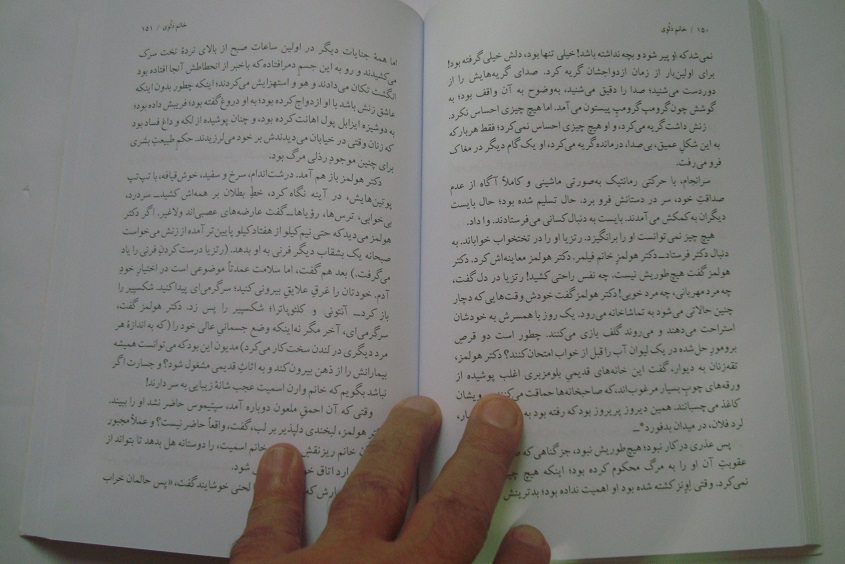 ۱۵۰ / خانم دَلُوِی
نمی‌شد که او پیر شود و بچه نداشته باشد! خیلی تنها بود، دلش خیلی گرفته بود!
برای اولین‌بار از زمان ازدواجشان گریه کرد. صدای گریه‌هایش را از
دوردست می‌شنید؛ صدا را دقیق می‌شنید، به‌وضوح به آن واقف بود؛ به
گوشش چون گرومپ گرومپِ پیستون می‌آمد. اما هیچ چیزی احساس نکرد.
زنش داشت گریه می‌کرد، و او هیچ چیزی احساس نمی‌کرد؛ فقط هربار که
به این شکلِ عمیق، بی‌صدا، درمانده گریه می‌کرد، او یک گام دیگر در مغاک
فرو می‌رفت.
سرانجام، با حرکتی رمانتیک به‌صورتی ماشینی و کاملاً آگاه از عدم
صداقتِ خود، سر در دستانش فرو برد. حال تسلیم شده بود؛ حال بایست
دیگران به کمکش می‌آمدند. بایست به دنبال کسانی می‌فرستادند. وا داد.
هیچ چیز نمی‌توانست او را برانگیزد. رتزیا او را در تختخواب خواباند. به
دنبال دکتر فرستاد ــ دکتر هولمزِ خانم فیلمر. دکتر هولمز معاینه‌اش کرد. دکتر
هولمز گفت هیچ طوریش نیست. چه نفس راحتی کشید! رتزیا در دل گفت،
چه مرد مهربانی، چه مرد خوبی! دکتر هولمز گفت خودش وقت‌هایی که دچار
چنین حالاتی می‌شود به تماشاخانه می‌رود. یک روز با همسرش به خودشان
استراحت می‌دهند و می‌روند گلف بازی می‌کنند. چطور است دو قرص
برومورِ حل‌شده در یک لیوان آب را قبل از خواب امتحان کنند؟ دکتر هولمز،
تقه‌زنان به دیوار، گفت این خانه‌های قدیمیِ بلومزبری اغلب پوشیده از
ورقه‌های چوبِ بسیار مرغوب‌اند، که صاحبخانه‌ها حماقت می‌کنند و رویشان
کاغذ می‌چسبانند. همین دیروز پریروز بود که رفته بود به
لرد فلان، در میدان بدفورد ــ
پس عذری در کار نبود؛ هیچ طوریش نبود، جز گناهی که
عقوبتِ آن او را به مرگ محکوم کرده بود؛ اینکه هیچ
نمی‌کرد. وقتی اِوِنز کشته شده بود او اهمیت نداده بود؛ بدترینش
خانم دَلُوِی / ۱۵۱
اما همهٔ جنایات دیگر در اولین ساعات صبح از بالای نردهٔ تخت سرک
می‌کشیدند و رو به این جسمِ دمرافتاده که باخبر از انحطاطش آنجا افتاده بود
انگشت تکان می‌دادند و هو و استهزایش می‌کردند؛ اینکه چطور بدون اینکه
عاشق زنش باشد با او ازدواج کرده بود؛ به او دروغ گفته بود؛ فریبش داده بود؛
به دوشیزه ایزابل پول اهانت کرده بود، و چنان پوشیده از لکه و داغ فساد بود
که زنان وقتی در خیابان می‌دیدندش بر خود می‌لرزیدند. حکم طبیعتِ بشری
برای چنین موجودِ رذلی مرگ بود.
دکتر هولمز باز هم آمد. درشت‌اندام، سرخ و سفید، خوش‌قیافه، با تپ‌تپِ
پوتین‌هایش، در آینه نگاه کرد، خطِ بطلان بر همه‌اش کشید ــ سردرد،
بی‌خوابی، ترس‌ها، رؤیاها ــ گفت عارضه‌های عصبی‌اند ولاغیر. اگر دکتر
هولمز می‌دید که حتی نیم کیلو از هفتاد کیلو پایین‌تر آمده از زنش می‌خواست
صبحانه یک بشقاب دیگر فرنی به او بدهد. (رتزیا درست کردنِ فرنی را یاد
می‌گرفت.) بعد هم گفت، اما سلامت عمدتاً موضوعی است در اختیارِ خودِ
آدم. خودتان را غرقِ علایقِ بیرونی کنید؛ سرگرمی‌ای پیدا کنید. شکسپیر را
باز کرد ــ آنتونی و کلئوپاترا؛ شکسپیر را پس زد. دکتر هولمز گفت،
سرگرمی‌ای، آخر مگر نه اینکه وضع جسمانیِ عالی خود را (که به اندازهٔ هر
مرد دیگری در لندن سخت کار می‌کرد) مدیون این بود که می‌توانست همیشه
بیمارانش را از ذهن بیرون کند و به اثاثِ قدیمی مشغول شود؟ و جسارت اگر
نباشد بگویم که خانم وارن اسمیت عجب شانهٔ زیبایی به سر دارند!
وقتی که آن احمقِ ملعون دوباره آمد، سپتیموس حاضر نشد او را ببیند.
دکتر هولمز، لبخندی دلپذیر بر لب، گفت، واقعاً حاضر نیست؟ و عملاً مجبور
خانم ریزنقش، خانم اسمیت، را دوستانه هل بدهد تا بتواند از
وارد اتاق شود.
لحنی خوشایند گفت، «پس حالمان خراب